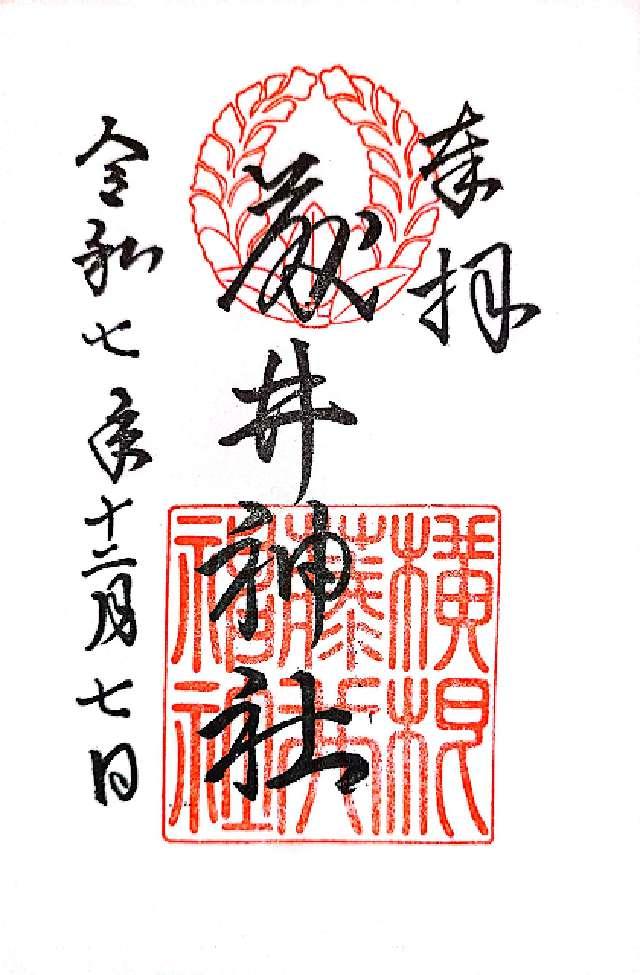 奉拝
藤井神社
令和七年十二月七日
横根
藤井
神社